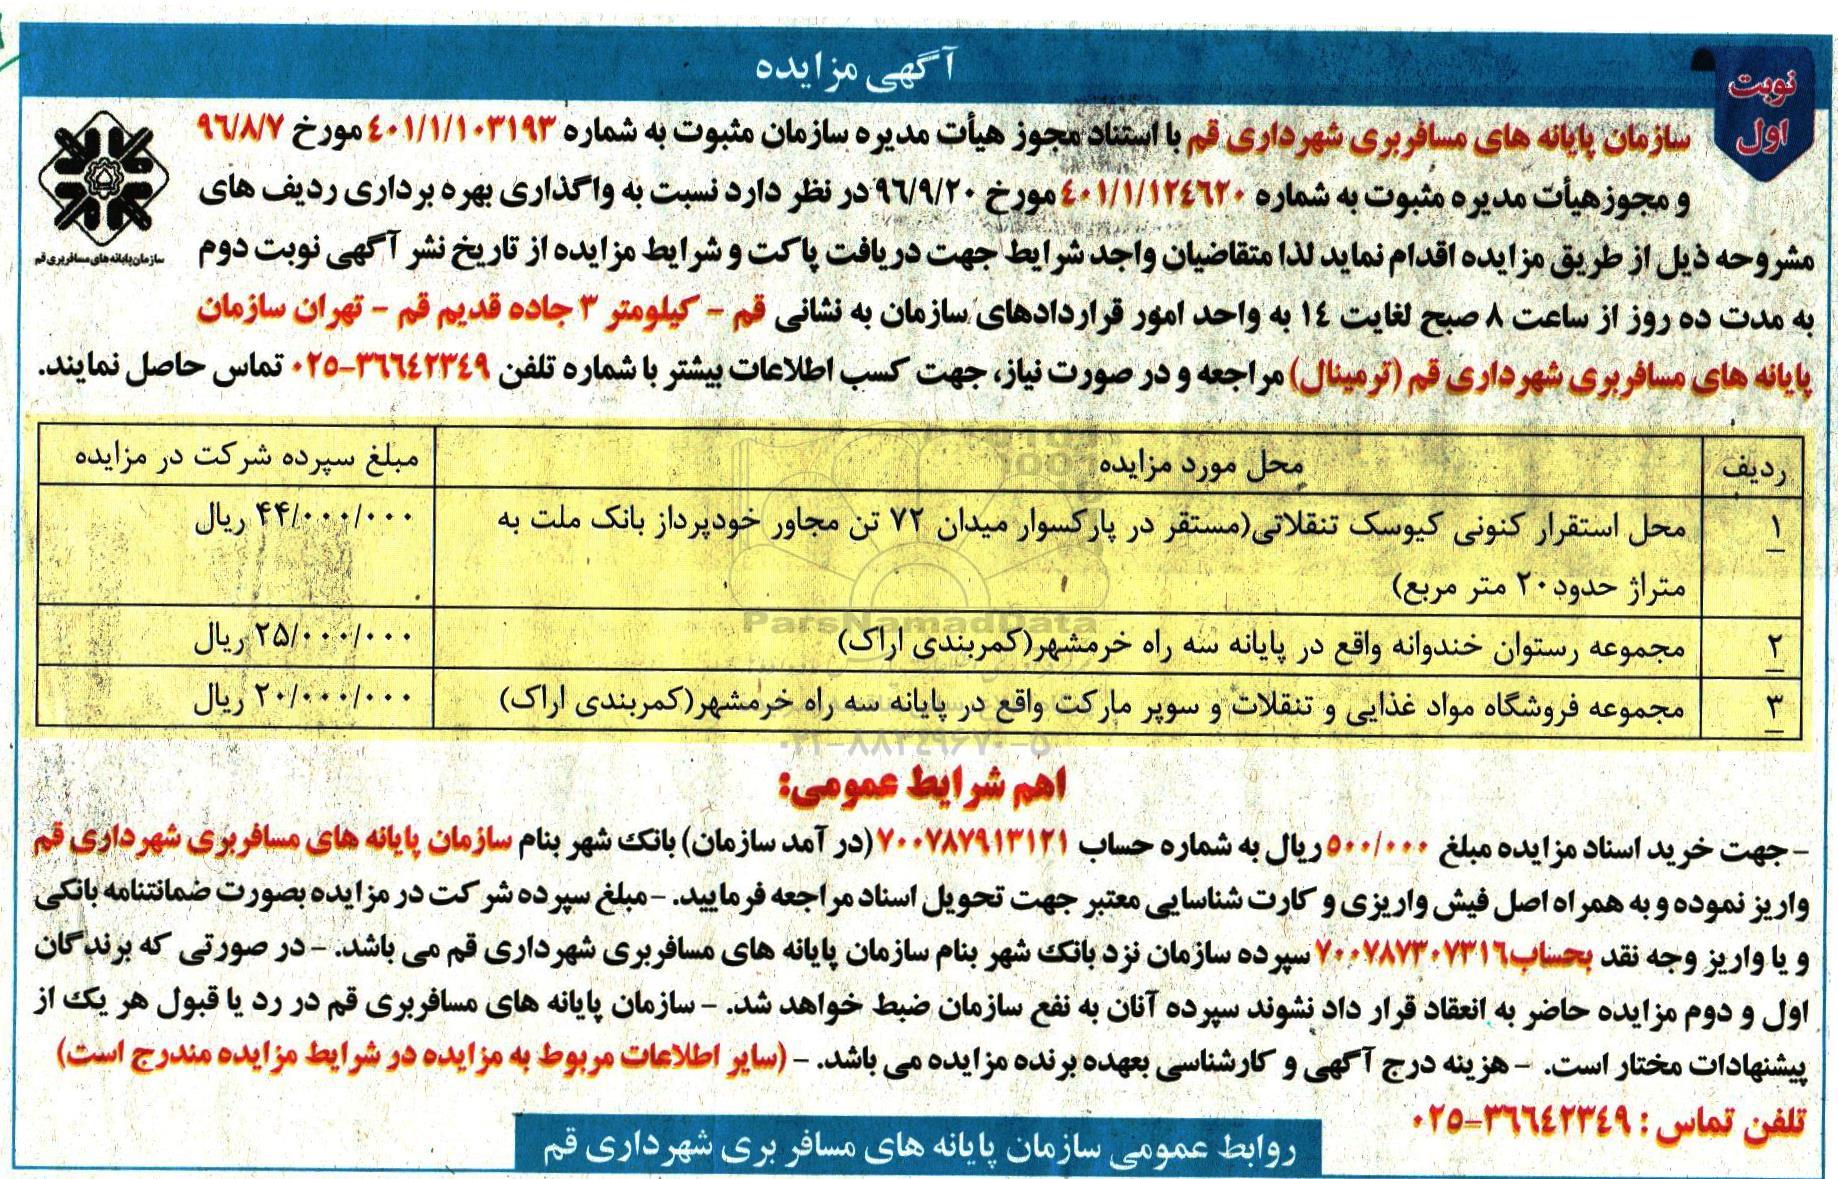 آگهی مزایده
نوبت
اول
سازمان پایانه های مسافربری شهرداری قم با استناد مجوز هیأت مدیره سازمان مثبوت به شماره ٤٠١/١/١٠٣١٩٣ مورخ ٩٦/٨/٧
و مجوزهیأت مدیره مثبوت به شماره ٤٠١/١/١٢٤٦٢٠ مورخ ٩٦/٩/٢٠ در نظر دارد نسبت به واگذاری بهره برداری ردیف های
مشروحه ذیل از طریق مزایده اقدام نماید لذا متقاضیان واجد شرایط جهت دریافت پاکت و شرایط مزایده از تاریخ نشر آگهی نوبت دوم
به مدت ده روز از ساعت ٨ صبح لغایت ١٤ به واحد امور قراردادهای سازمان به نشانی قم - کیلومتر ٣ جاده قدیم قم - تهران سازمان
پایانه های مسافربری شهرداری قم (ترمینال) مراجعه و در صورت نیاز، جهت کسب اطلاعات بیشتر با شماره تلفن ٣٦٦٤٢٣٤٩-٠٢٥ تماس حاصل نمایند.
سازمان پایانه های مسافربری قم
ردیف محل مورد مزایده مبلغ سپرده شرکت در مزایده
۱ محل استقرار کنونی کیوسک تنقلاتی(مستقر در پارکسوار میدان ۷۲ تن مجاور خودپرداز بانک ملت به ۴۴/۰۰۰/۰۰۰ ریال
متراژ حدود۲۰ متر مربع)
۲ مجموعه رستوان خندوانه واقع در پایانه سه راه خرمشهر(کمربندی اراک) ۲۵/۰۰۰/۰۰۰ ریال
۳ مجموعه فروشگاه مواد غذایی و تنقلات و سوپر مارکت واقع در پایانه سه راه خرمشهر(کمربندی اراک) ۲۰/۰۰۰/۰۰۰ ریال
ParsNamadData
۰۲۱-۸۸۳۴۹۶۷۰-۵
اهم شرایط عمومی:
- جهت خرید اسناد مزایده مبلغ ٥٠٠/٠٠٠ ریال به شماره حساب ٧٠٠٧٨٧٩١٣١٢١ (در آمد سازمان) بانک شهر بنام سازمان پایانه های مسافربری شهرداری قم
واریز نموده و به همراه اصل فیش واریزی و کارت شناسایی معتبر جهت تحویل اسناد مراجعه فرمایید. - مبلغ سپرده شرکت در مزایده بصورت ضمانتنامه بانکی
و یا واریز وجه نقد بحساب٧٠٠٧٨٧٣٠٧٣١٦ سپرده سازمان نزد بانک شهر بنام سازمان پایانه های مسافربری شهرداری قم می باشد. - در صورتی که برندگان
اول و دوم مزایده حاضر به انعقاد قرار داد نشوند سپرده آنان به نفع سازمان ضبط خواهد شد. - سازمان پایانه های مسافربری قم در رد یا قبول هر یک از
پیشنهادات مختار است. - هزینه درج آگهی و کارشناسی بعهده برنده مزایده می باشد. - (سایر اطلاعات مربوط به مزایده در شرایط مزایده مندرج است)
تلفن تماس : ٣٦٦٤٢٣٤٩-٠٢٥
روابط عمومی سازمان پایانه های مسافر بری شهرداری قم